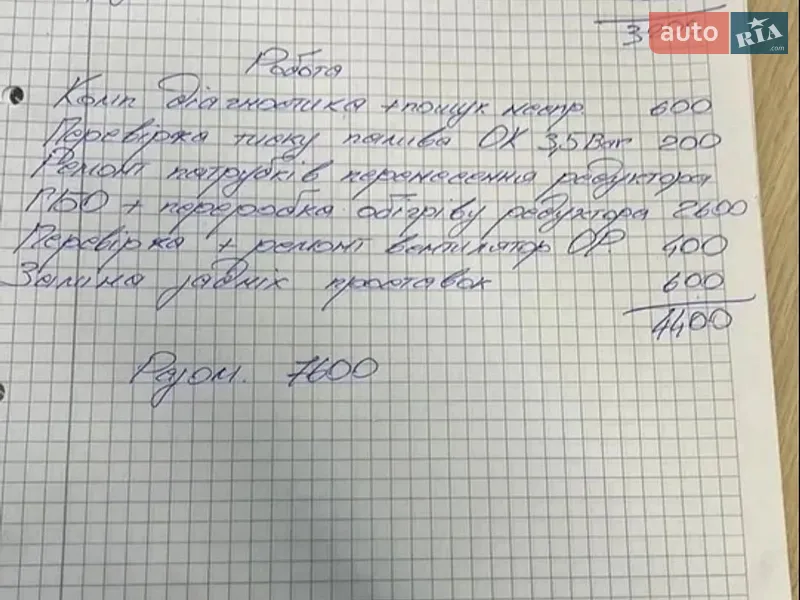 auto RIA.com
Робота
Комп діагностика + пошук неспр. 600
Перевірка тиску палива ОК 3,5 Bar 200
Ремонт патрубків перенесення редуктора
ГБО + переробка обігріву редуктора 2600
Перевірка + ремонт вентилятор ОР. 400
Заміна задніх проставок 600
4400
Разом. 7600